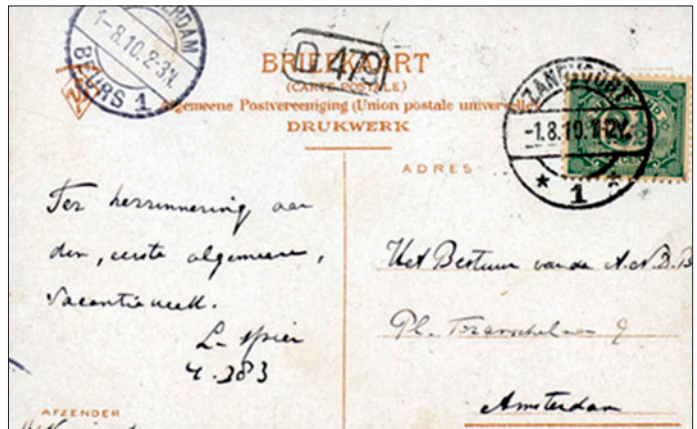 AMSTERDAM
1-8.10.2-3N.
BEURS 1
D 479
BRIEFKAART
(CARTE POSTALE)
Algemeene Postvereeniging (Union postale universelle)
DRUKWERK
ZANDVOORT
-1.8.10.1-2N.
* 1 *
ADRES
Ter herinnering aan
den "eerste algemeene"
vacantieweek.
L. Spier
4.383
Het Bestuur van de A.N.D.B
Pl. Franschelaan 9
Amsterdam
AFZENDER